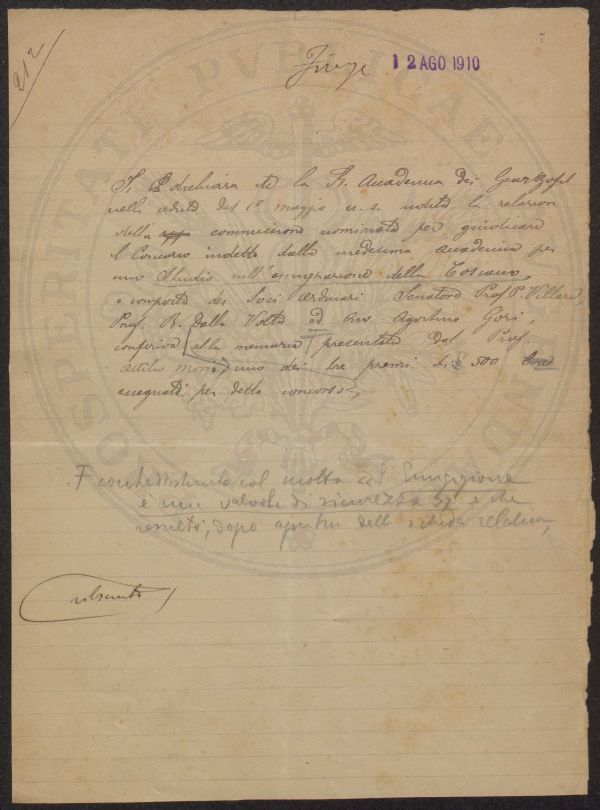 212
Firenze 12 AGO 1910
Si dichiara che la R. Accademia dei Georgofili
nella seduta del 1º maggio u. s. udita la relazione
della commissione nominata per giudicare
il Concorso indetto dalla medesima Accademia per
uno Studio sull'emigrazione della Toscana,
e composta dei Soci ordinari Senatore Prof. P. Villari,
Prof. R. Dalla Volta ed Avv. Agostino Gori,
conferiva alla memoria presentata dal Prof.
Attilio Mori uno dei tre premi di £ 500
assegnati per detto concorso
contraddistinta col motto "L'Emigrazione
è una valvola di sicurezza" e che
resultò, dopo apertura della scheda relativa,